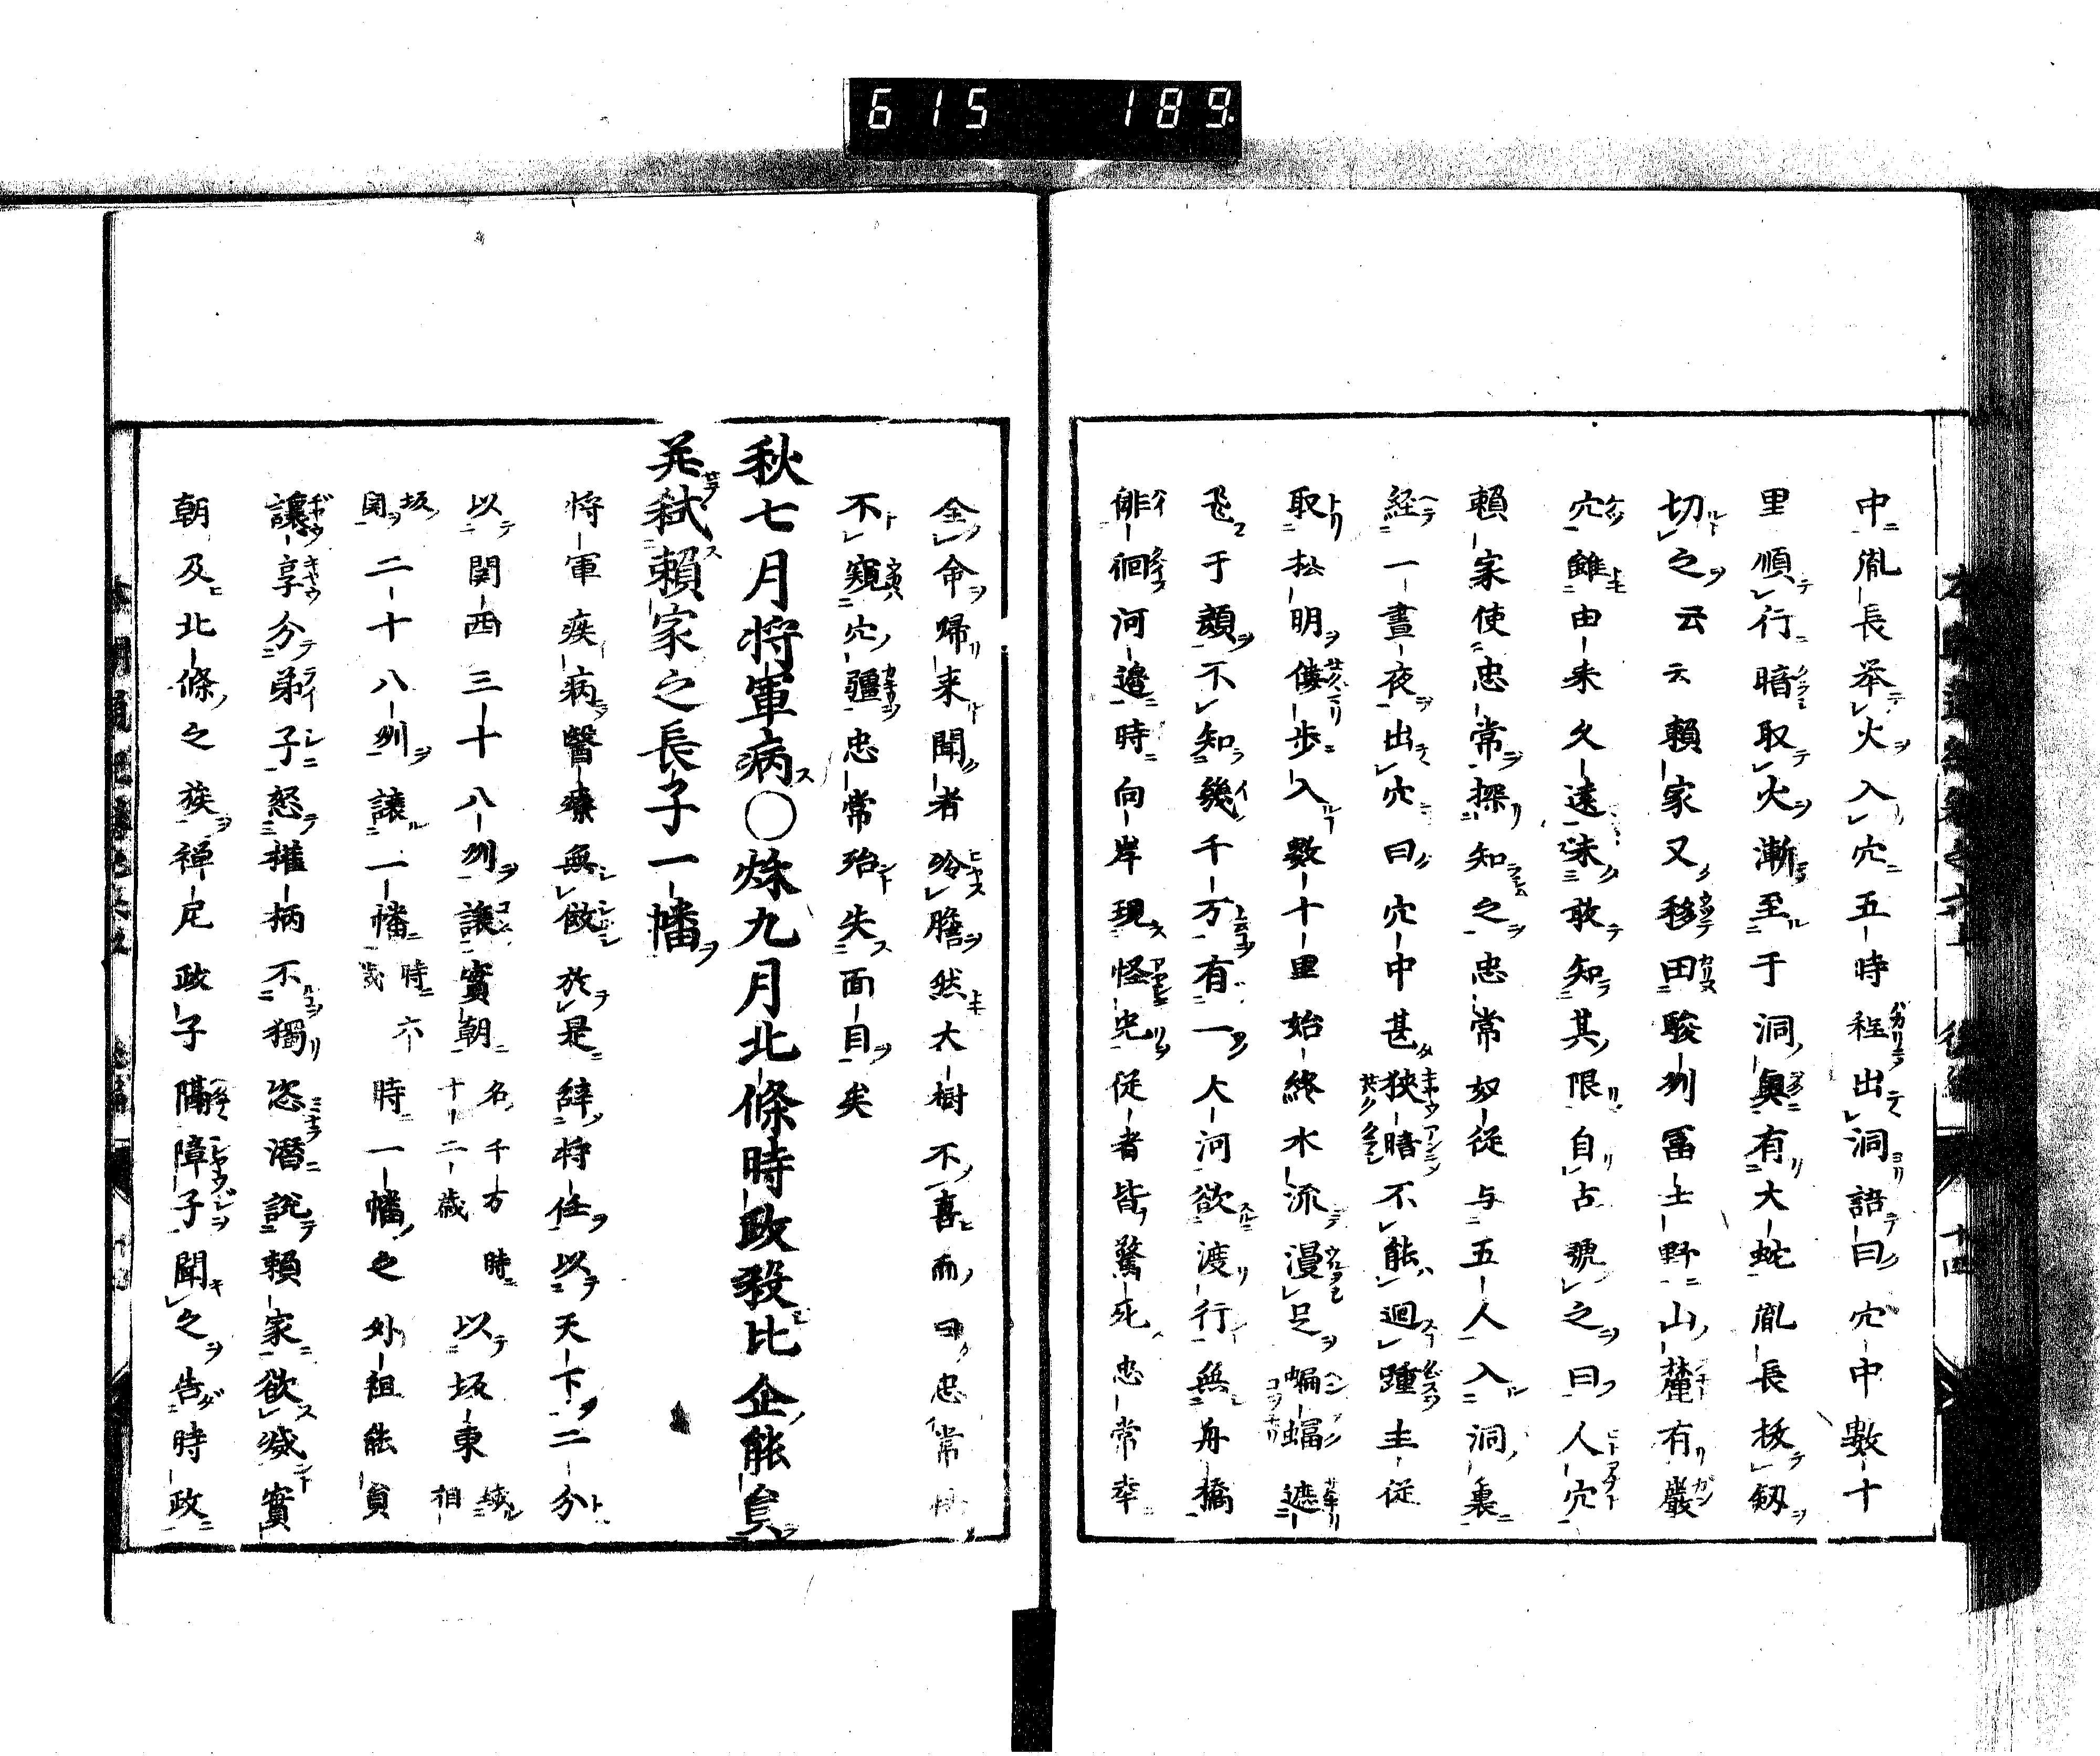 615 189
中胤長举火入穴五時程出洞語曰穴中數十
里順行暗取火漸至于洞奧有大蛇胤長拔劔
切之云云賴家又移田駿州冨士野山麓有巖
穴雖由来久遠未敢知其限自占號之曰人穴
賴家使忠常探知之忠常奴従与五人入洞裏
経一晝夜出穴曰穴中甚狹暗不能迴踵主従
取松明僂步入數十里始終水流漫足蝙蝠遮
飛于顔不知幾千万有一大河欲渡行無舟橋
徘徊河邉時向岸現怪光従者皆驚死忠常幸
全命歸来聞者冷膽然大樹不喜而曰忠常
不窺穴疆忠常殆失面目矣
秋七月将軍病〇秌九月北條時政殺比企能員
并弑賴家之長子一幡
将軍疾病醫療無傚於是辭将任以天下二分
以関西三十八州讓實朝名千方時十二歳以坂東相續
坂関二十八州譲一幡時六歳時一幡之外祖能員
讓享分弟子怒權柄不獨恣潛説賴家欲滅實
朝及北條之族禅尼政子隔障子聞之告時政